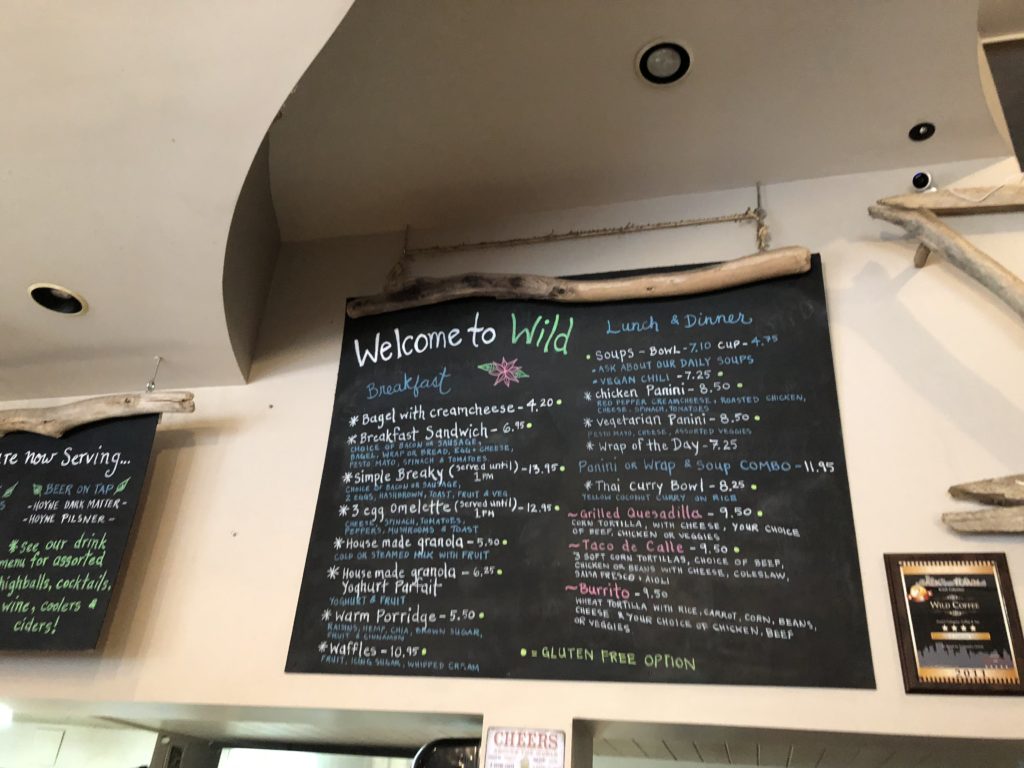 Welcome to Wild
Breakfast
* Bagel with creamcheese - 4.20 •
* Breakfast Sandwich - 6.95 •
CHOICE OF BACON OR SAUSAGE,
BAGEL, WRAP OR BREAD, EGG + CHEESE,
PESTO MAYO, SPINACH & TOMATOES
* Simple Breaky (served until) - 13.95 •
1PM
CHOICE OF BACON OR SAUSAGE,
2 EGGS, HASHBROWN, TOAST, FRUIT & VEG
* 3 egg omelette (served until) - 12.95 •
1PM
CHEESE, SPINACH, TOMATOES,
PEPPERS, MUSHROOMS & TOAST
* House made granola - 5.50 •
COLD OR STEAMED MILK WITH FRUIT
* House made granola - 6.25 •
Yoghurt Parfait
YOGHURT & FRUIT
* Warm Porridge - 5.50 •
RAISINS, HEMP, CHIA, BROWN SUGAR,
FRUIT & CINNAMON
* Waffles - 10.95 •
FRUIT, ICING SUGAR, WHIPPED CREAM
Lunch & Dinner
• SOUPS - BOWL - 7.10 CUP - 4.75
• ASK ABOUT OUR DAILY SOUPS
• VEGAN CHILI - 7.25 •
* chicken Panini - 8.50 •
RED PEPPER CREAMCHEESE, ROASTED CHICKEN,
CHEESE, SPINACH, TOMATOES
* Vegetarian Panini - 8.50 •
PESTO MAYO, CHEESE, ASSORTED VEGGIES
* Wrap of the Day - 7.25
Panini or Wrap & Soup COMBO - 11.95
* Thai curry Bowl - 8.25 •
YELLOW COCONUT CURRY ON RICE
~ Grilled Quesadilla - 9.50 •
CORN TORTILLA, WITH CHEESE, YOUR CHOICE
OF BEEF, CHICKEN OR VEGGIES
~ Taco de Calle - 9.50 •
3 SOFT CORN TORTILLAS, CHOICE OF BEEF,
CHICKEN OR BEANS WITH CHEESE, COLESLAW,
SALSA FRESCO + AIOLI
~ Burrito - 9.50
WHEAT TORTILLA WITH RICE, CARROT, CORN, BEANS,
CHEESE & YOUR CHOICE OF CHICKEN, BEEF
OR VEGGIES
• = GLUTEN FREE OPTION
re now Serving...
BEER ON TAP
- HOYNE DARK MATTER -
- HOYNE PILSNER -
* See our drink
menu for assorted
highballs, cocktails,
wine, coolers &
ciders!
WILD COFFEE
2011
CHEERS